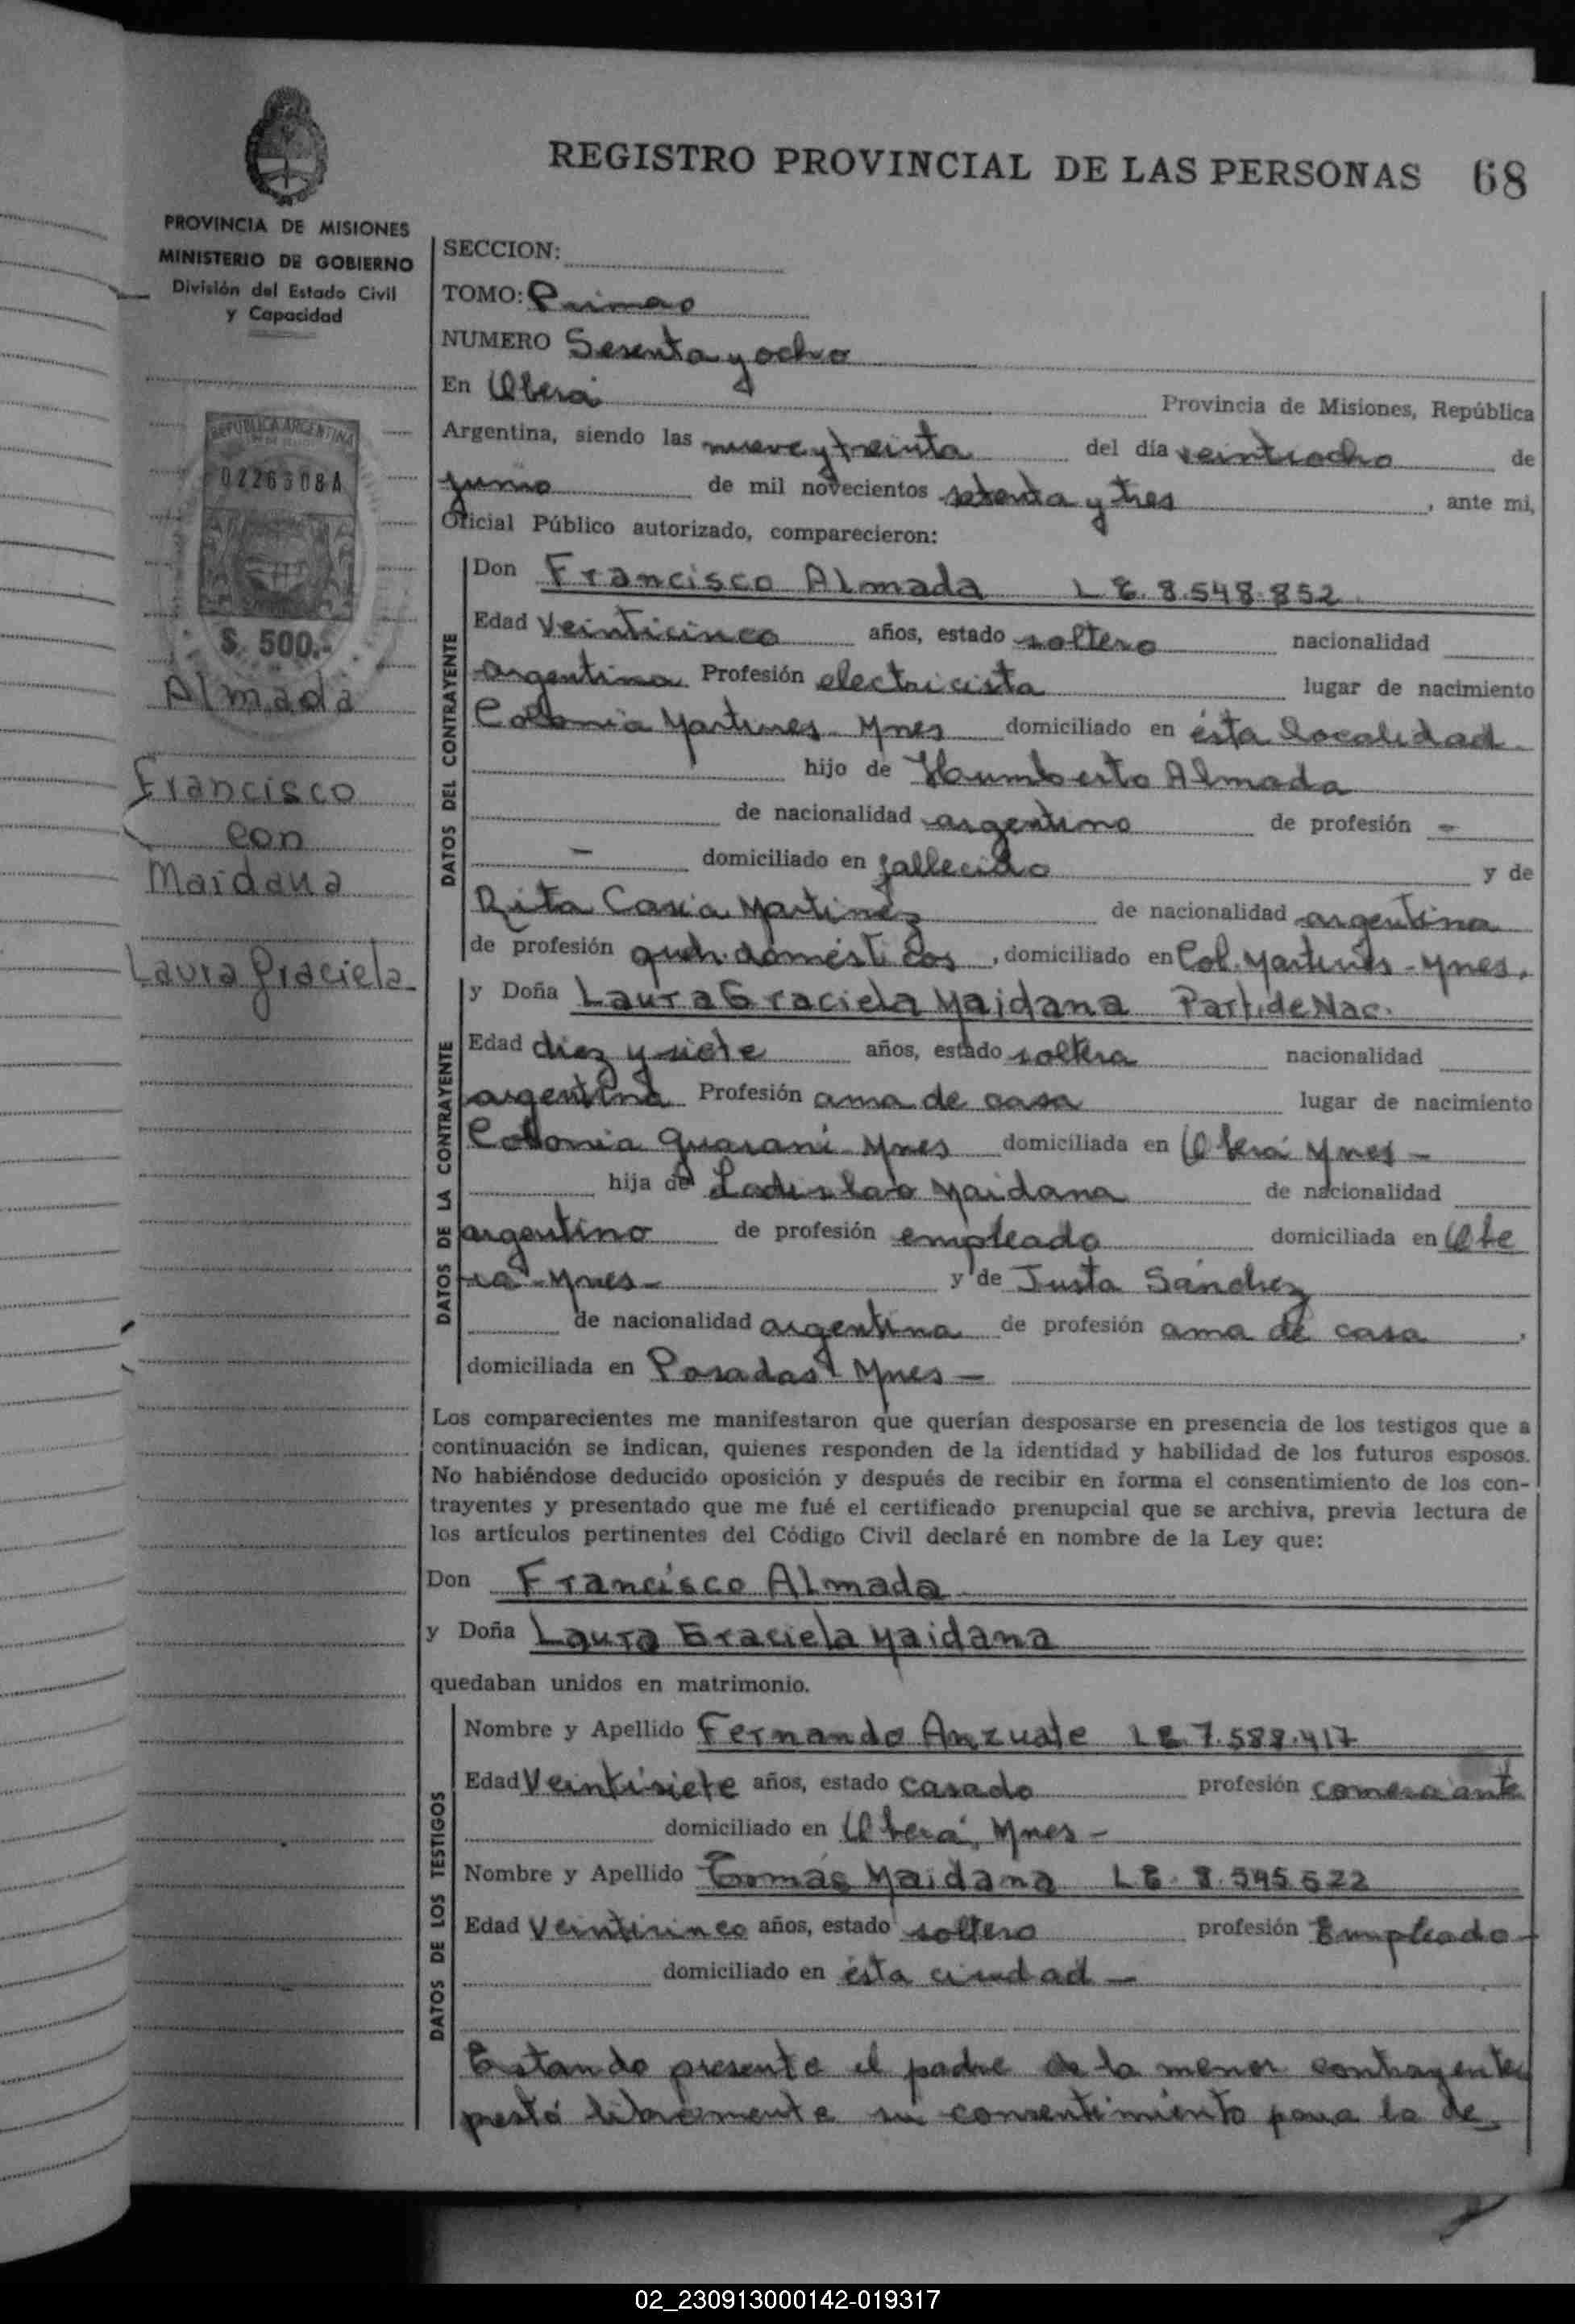 REGISTRO PROVINCIAL DE LAS PERSONAS 68
PROVINCIA DE MISIONES
MINISTERIO DE GOBIERNO
División del Estado Civil
y Capacidad
REPUBLICA ARGENTINA
0226308A
$. 500.-
Almada
Francisco
con
Maidana
Laura Graciela
SECCION:
TOMO: Primero
NUMERO Sesenta y ocho
En Oberá Provincia de Misiones, República
Argentina, siendo las nueve y treinta del día veintiocho de
junio de mil novecientos setenta y tres, ante mi,
Oficial Público autorizado, comparecieron:
DATOS DEL CONTRAYENTE
Don Francisco Almada L E. 8.548.852
Edad Veinticinco años, estado soltero nacionalidad
argentina Profesión electricista lugar de nacimiento
Colonia Martires Mnes domiciliado en ésta localidad.
hijo de Humberto Almada
de nacionalidad argentino de profesión -
- domiciliado en fallecido y de
Rita Casia Martinez de nacionalidad argentina
de profesión queh. domésticos, domiciliado en Col. Martires - Mnes.
DATOS DE LA CONTRAYENTE
y Doña Laura Graciela Maidana Part. de Nac.
Edad diez y siete años, estado soltera nacionalidad
argentina Profesión ama de casa lugar de nacimiento
Colonia Guaraní - Mnes domiciliada en Oberá Mnes -
hija de Ladislao Maidana de nacionalidad
argentino de profesión empleado domiciliada en Obe
rá - Mnes - y de Justa Sánchez
de nacionalidad argentina de profesión ama de casa,
domiciliada en Posadas - Mnes -
Los comparecientes me manifestaron que querían desposarse en presencia de los testigos que a
continuación se indican, quienes responden de la identidad y habilidad de los futuros esposos.
No habiéndose deducido oposición y después de recibir en forma el consentimiento de los con-
trayentes y presentado que me fué el certificado prenupcial que se archiva, previa lectura de
los artículos pertinentes del Código Civil declaré en nombre de la Ley que:
Don Francisco Almada
y Doña Laura Graciela Maidana
quedaban unidos en matrimonio.
DATOS DE LOS TESTIGOS
Nombre y Apellido Fernando Anzuate L E 7.588.417
Edad Veintisiete años, estado casado profesión comerciante
domiciliado en Oberá, Mnes -
Nombre y Apellido Tomás Maidana L E. 8.545.522
Edad Veinticinco años, estado soltero profesión Empleado -
domiciliado en ésta ciudad -
Estando presente el padre de la menor contrayente
prestó libremente su consentimiento para la de
02_230913000142-019317